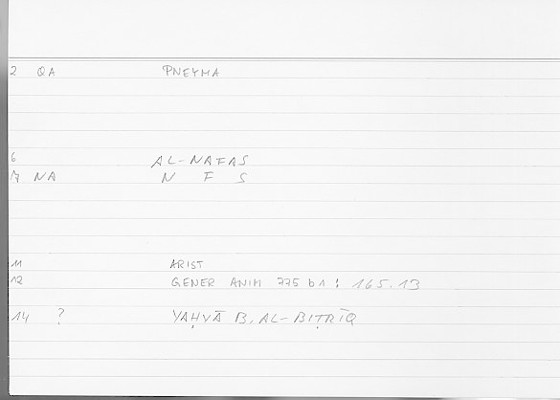 2 QA PNEYMA
6 AL-NAFAS
7 NA N F S
11 ARIST
12 GENER ANIM 775 b1 : 165.13
14 ? YAḤYĀ B. AL-BIṬRĪQ